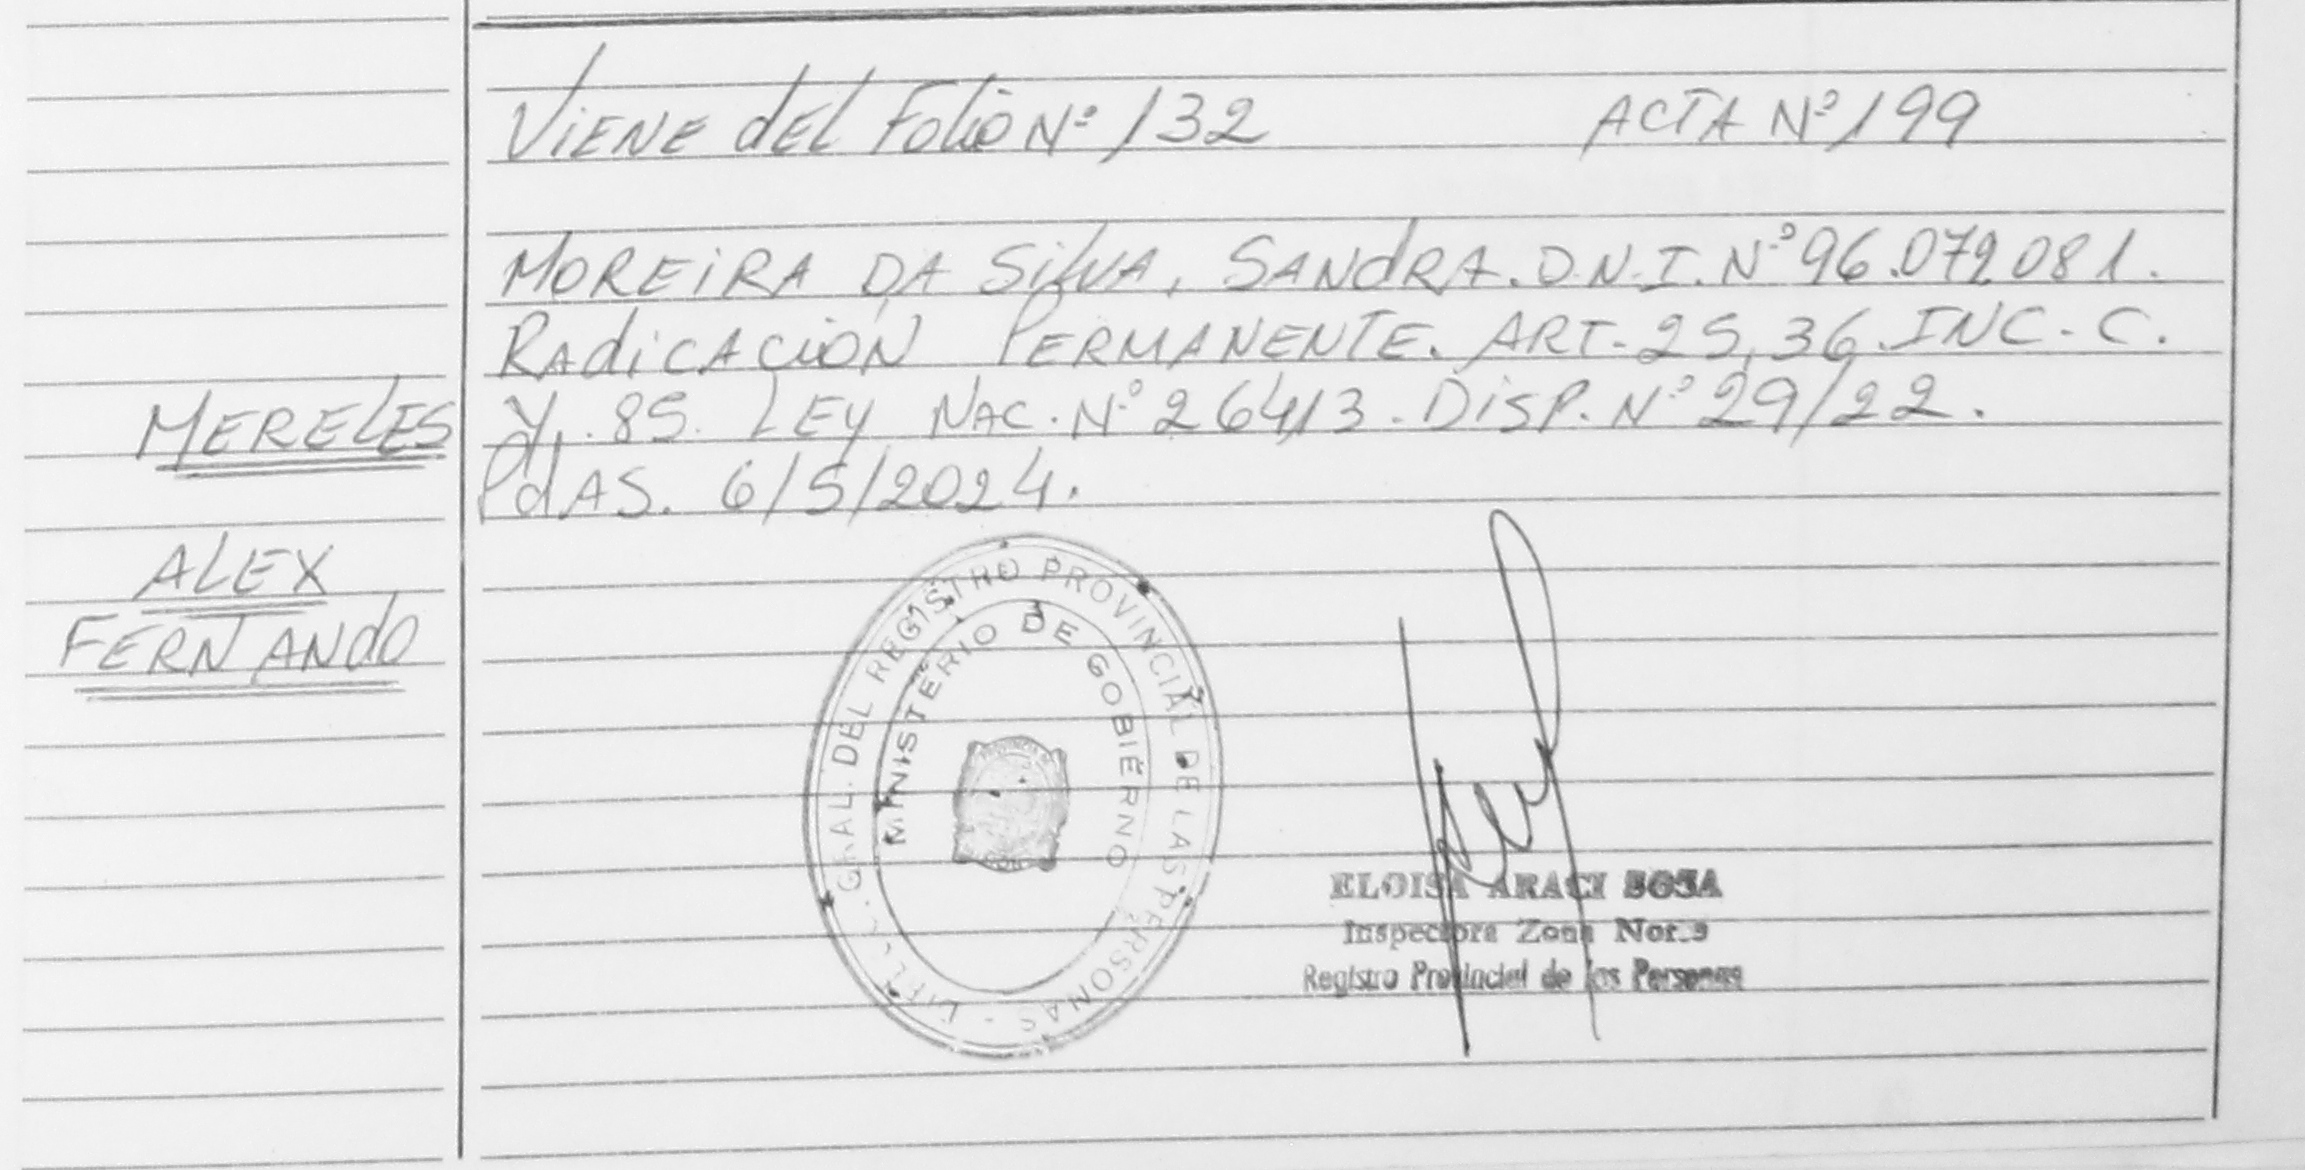 Viene del Folio Nº 132 ACTA Nº 199
MOREIRA DA SilvA, SANdRA. D.N.I. Nº 96.072081.
RAdicACiÓN PERMANENTE. ART. 25, 36. INC. C.
Y. 85. LEY NAC. Nº 26413. DiSP. Nº 29/22.
PdAS. 6/5/2024.
MERELES
ALEX
FERNANdO
GRAL. DEL REGISTRO PROVINCIAL DE LAS PERSONAS -
MINISTERIO DE GOBIERNO
ELOISA ARACI SOSA
Inspectora Zona
Registro Provincial de las Personas